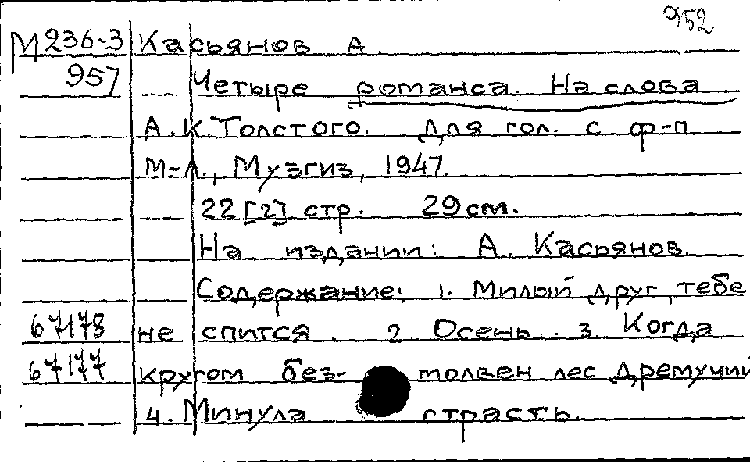 952
М 236-3 Касьянов А
957 Четыре романса. На слова
А.К Толстого. Для гол. с ф-п
М-Л., Музгиз, 1947.
22 [2] стр. 29 см.
На издании: А. Касьянов
Содержание: 1. Милый друг, тебе
67178 не спится. 2 Осень. 3. Когда
67177 кругом без- молвен лес дремучий
4. Минула страсть.